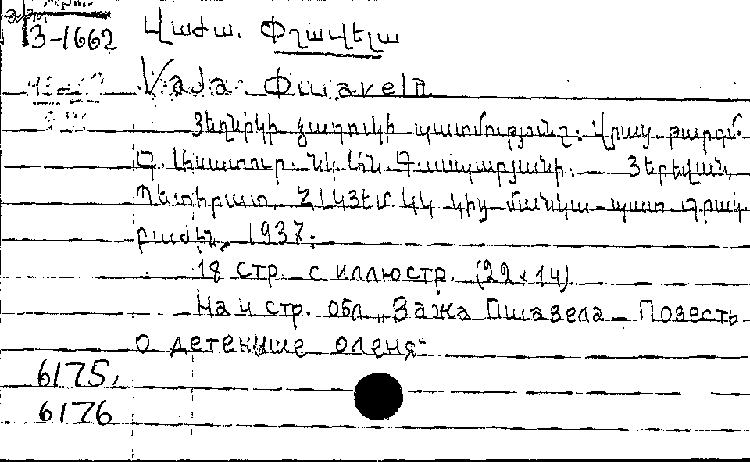 3-1662 Վաժա. Փշավելա
Vaja Փшavela
Եղնիկի ցաղուկի պատմությունը: Վրաց. թարգմ.
Գ. Նկ. Լևոն Գասպարյանի. Յերեվան,
Պետհրատ, ՀԼԿՅԵՄ ԿԿ կից մանկա-պատ. գրակ.
բաժին, 1937:
18 стр. с иллюстр. (22×14)
На 4 стр. обл. „Важа Пшавела – Повесть
о детеныше оленя"
6175,
6176